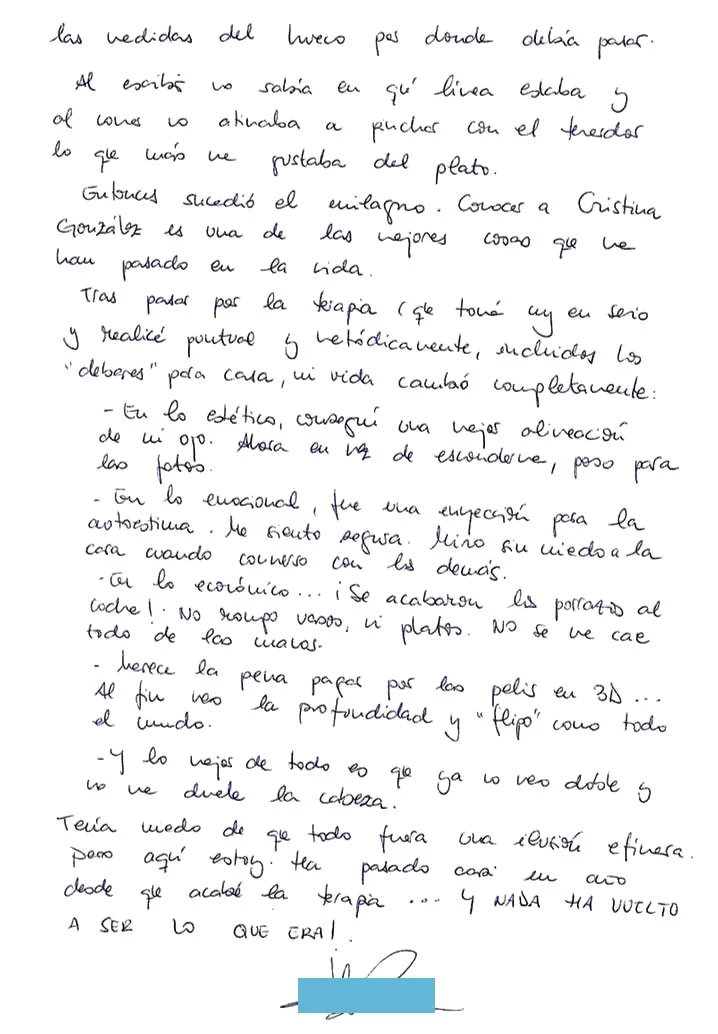 las medidas del hueco por donde debía pasar.
Al escribir no sabía en qué línea estaba y
al comer no atinaba a pinchar con el tenedor
lo que más me gustaba del plato.
Entonces sucedió el milagro. Conocer a Cristina
González es una de las mejores cosas que me
han pasado en la vida.
Tras pasar por la terapia (que tomé muy en serio
y realicé puntual y metódicamente, incluidos los
"deberes" para casa, mi vida cambió completamente:
- En lo estético, conseguí una mejor alineación
de mi ojo. Ahora en vez de esconderme, poso para
las fotos.
- En lo emocional, fue una enyección para la
autoestima. Me siento segura. Miro sin miedo a la
cara cuando converso con los demás.
- En lo económico... ¡Se acabaron los porrazos al
coche! No rompo vasos, ni platos. NO se me cae
todo de las manos.
- Merece la pena pagar por las pelis en 3D ...
Al fin veo la profundidad y "flipo" como todo
el mundo.
- Y lo mejor de todo es que ya no veo doble y
no me duele la cabeza.
Tenía miedo de que todo fuera una ilusión efímera.
Pero aquí estoy. Ha pasado casi un año
desde que acabé la terapia ... Y NADA HA VUELTO
A SER LO QUE ERA!